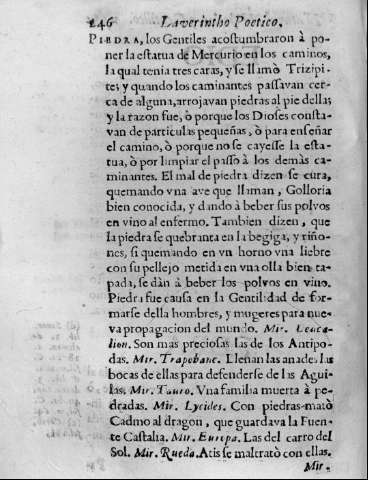 246 Laverintho Poetico.
PIEDRA, los Gentiles acostumbraron à po-
ner la estatua de Mercurio en los caminos,
la qual tenia tres caras, y se llamò Trizipi-
tes y quando los caminantes passavan cer-
ca de alguna, arrojavan piedras al pie della;
y la razon fue, ò porque los Dioses consta-
van de particulas pequeñas, ò para enseñar
el camino, ò porque no se cayesse la esta-
tua, ò por limpiar el passo à los demàs ca-
minantes. El mal de piedra dizen se cura,
quemando vna ave que llaman, Golloria
bien conocida, y dando à beber sus polvos
en vino al enfermo. Tambien dizen, que
la piedra se quebranta en la begiga, y riño-
nes, si quemando en vn horno vna liebre
con su pellejo metida en vna olla bien ta-
pada, se dàn à beber los polvos en vino.
Piedra fue causa en la Gentilidad de for-
marse della hombres, y mugeres para nue-
va propagacion del mundo. Mir. Leuca-
lion. Son mas preciosas las de los Antipo-
das. Mir. Trapobane. Llenan las anades las
bocas de ellas para defenderse de las Agui-
las. Mir. Tauro. Vna familia muerta à pe-
dradas. Mir. Lycides. Con piedras matò
Cadmo al dragon, que guardava la Fuen-
te Castalia. Mir. Europa. Las del carro del
Sol. Mir. Rueda. Atis se maltratò con ellas.
Mir.